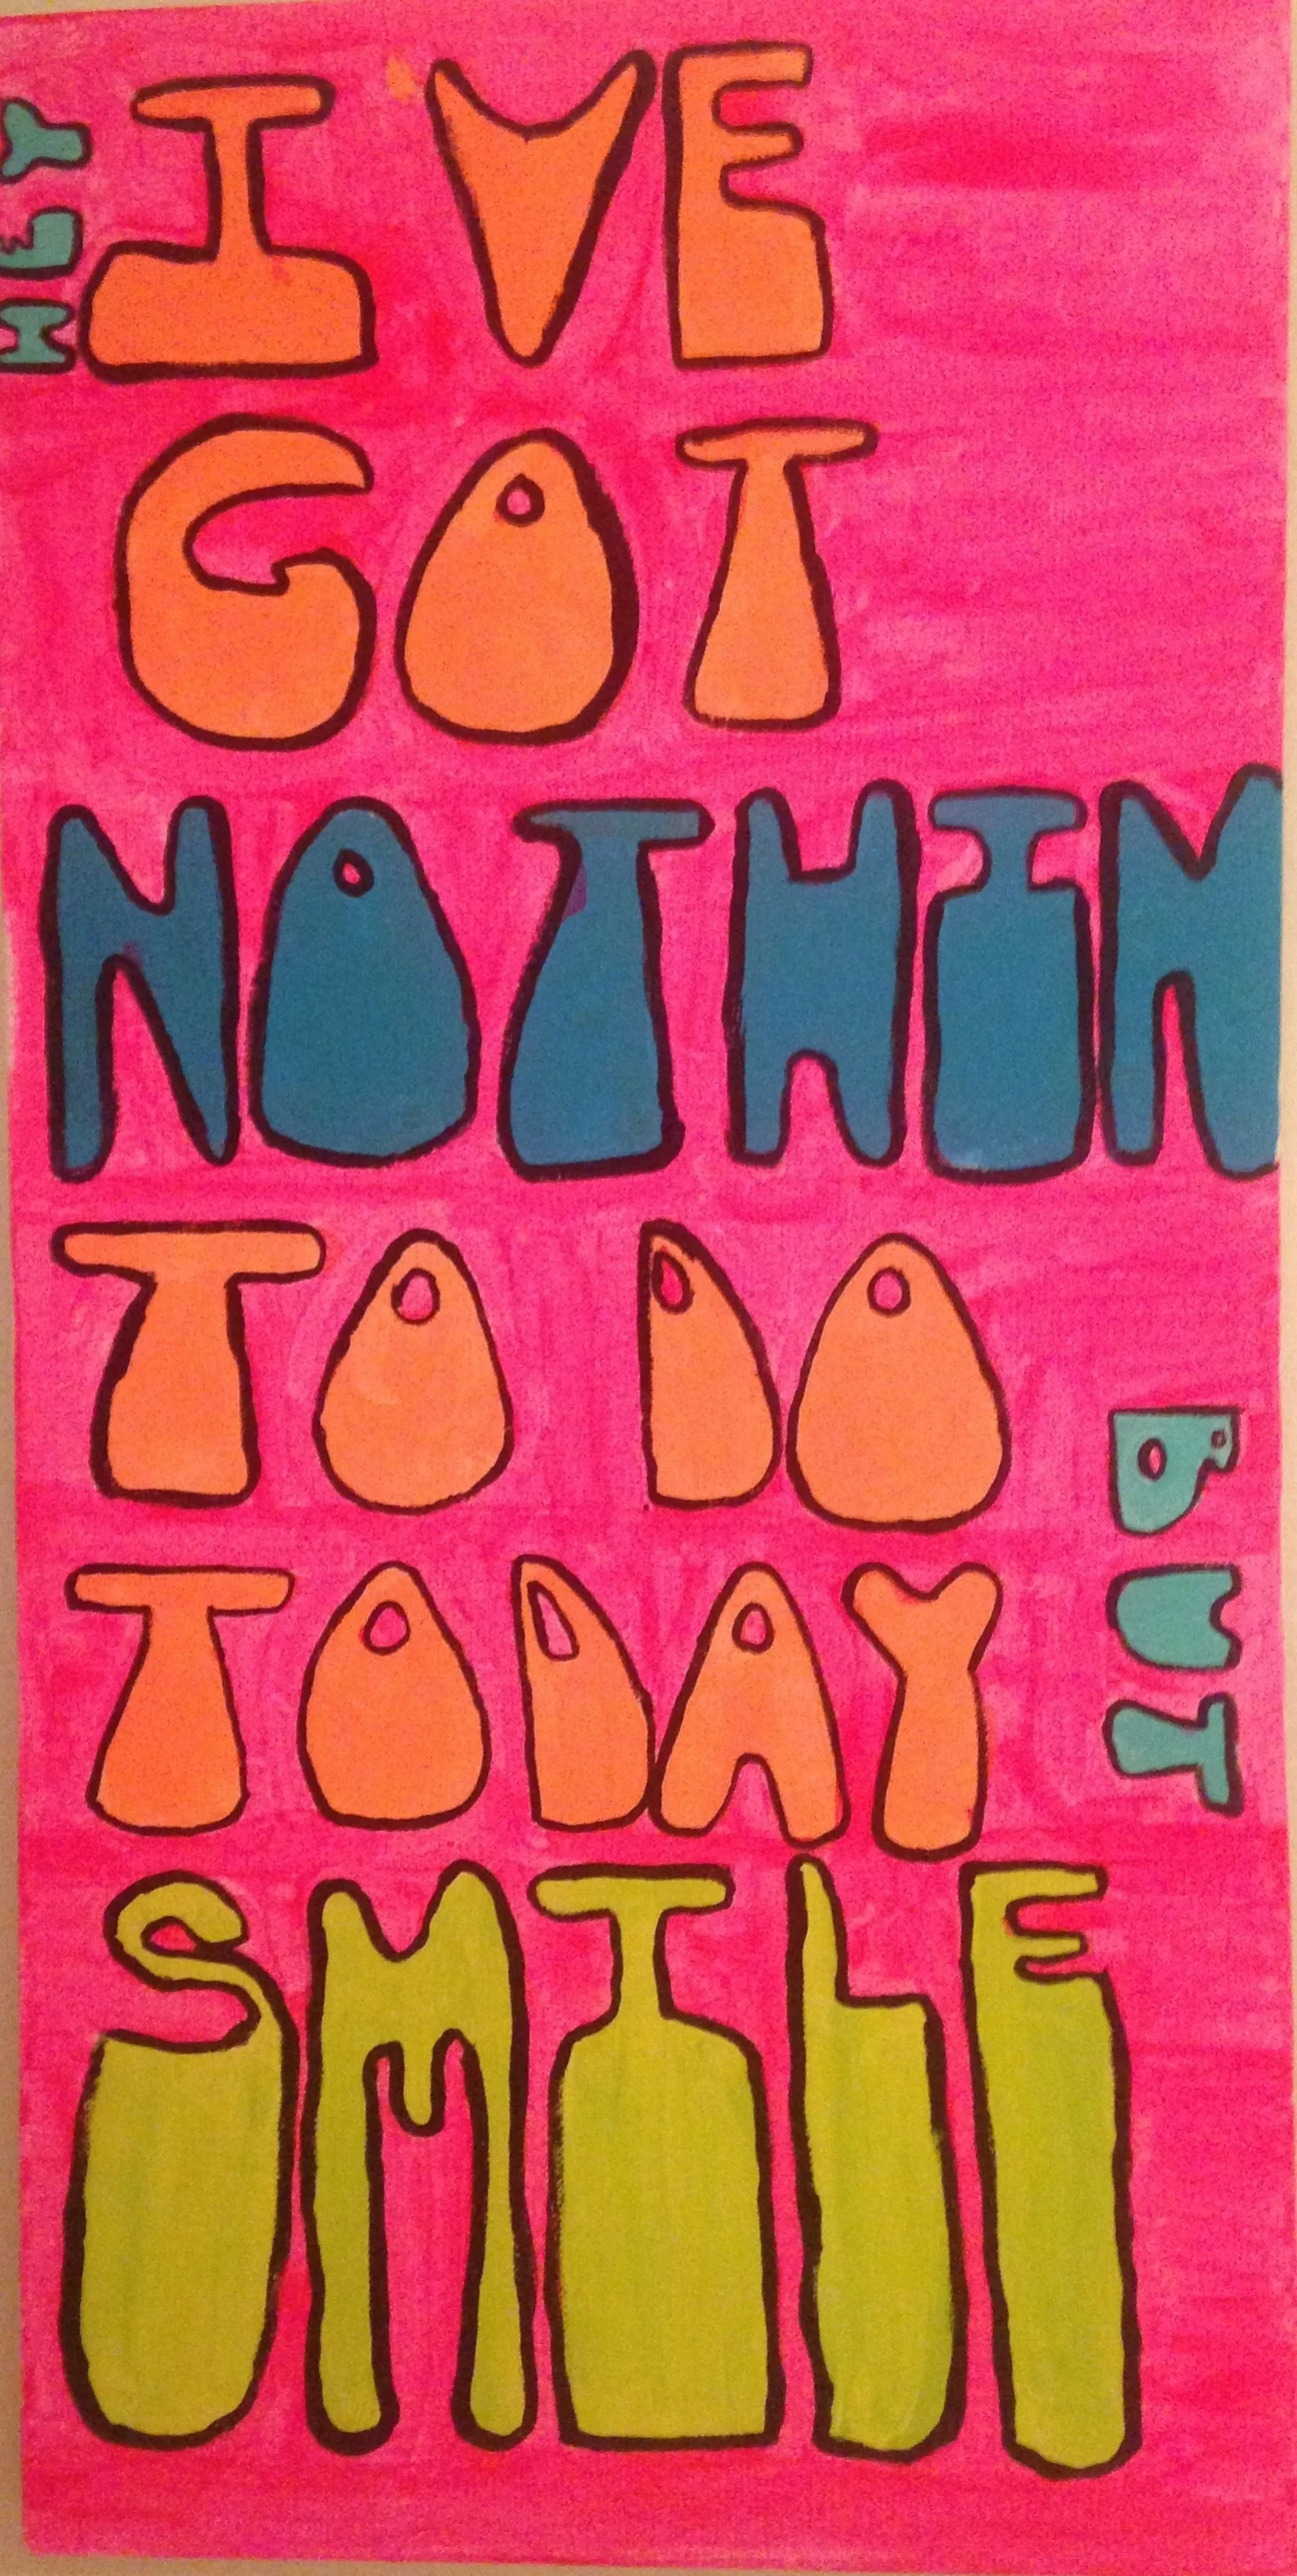 HEY
IVE
GOT
NOTHIN
TO DO
TODAY
BUT
SMILE